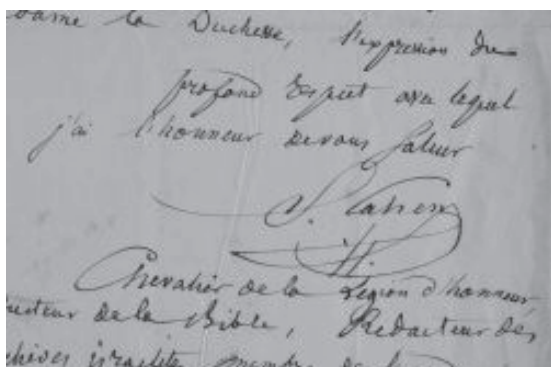 dame la Duchesse, l'expression du
profond respect avec lequel
j'ai l'honneur de vous saluer
S. Cahen
Chevalier de la Légion d'honneur,
ducteur de la Bible, Rédacteur des
chives israelites membre de